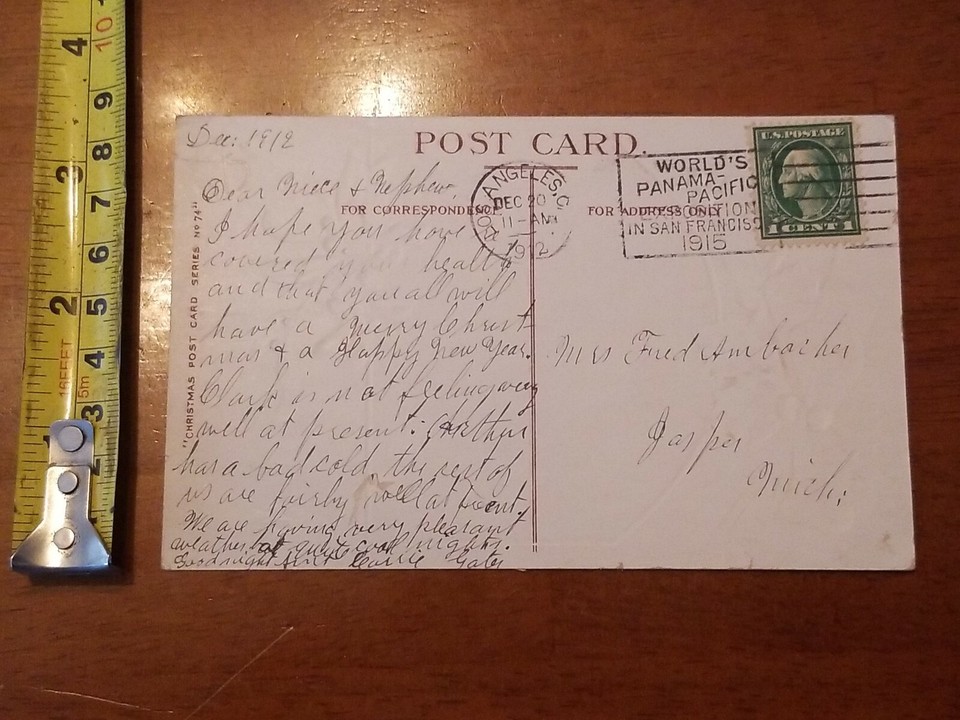 Dec: 1912
POST CARD.
FOR CORRESPONDENCE
FOR ADDRESS ONLY
"CHRISTMAS POST CARD SERIES No 74"
LOS ANGELES, C
DEC 20
11-AM
1912
WORLD'S
PANAMA-
PACIFIC
EXPOSITION
IN SAN FRANCISCO
1915
U.S. POSTAGE
1 CENT 1
Dear Niece & Nephew,
I hope you have
covered your health
and that you all will
have a Merry Christ
mas & a Happy New Year.
Clark is not feeling very
well at present. Arthur
has a bad cold the rest of
us are fairly well at present.
We are having very pleasant
weather but quite cool nights.
Goodnight Aunt Carrie Gates
Mrs Fred Ambacher
Jasper
Mich.
4 3 2 1
10 9 8 7 6 5 4 3 2
16FEET
5m